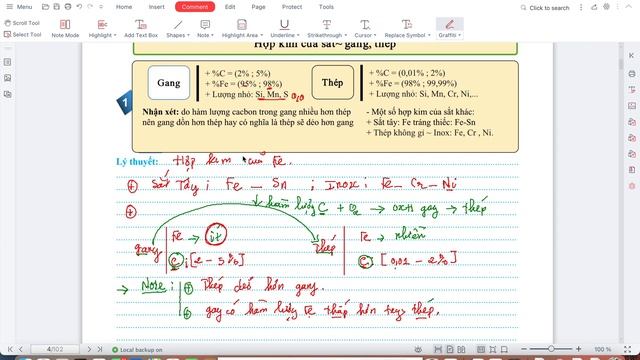 Home Insert Comment Edit Page Protect Tools
Scroll Tool
Select Tool
Measurement
Highlight
Add Text Box
Shapes
Note
Highlight Area
Underline
Strikethrough
Cursor
Replace Symbol
Graffiti
Hợp kim của sắt~ gang, thép
1
Gang
+ %C = (2% ; 5%)
+ %Fe = (95% ; 98%)
+ Lượng nhỏ: Si, Mn, S
Thép
+ %C = (0,01% ; 2%)
+ %Fe = (98% ; 99,99%)
+ Lượng nhỏ: Si, Mn, Cr, Ni,...
Nhận xét: do hàm lượng cacbon trong gang nhiều hơn thép
nên gang dồn hơn thép hay có nghĩa là thép sẽ dẻo hơn gang
- Một số hợp kim của sắt khác:
+ Sắt tây: Fe tráng thiếc: Fe-Sn
+ Thép không gỉ ~ Inox: Fe, Cr , Ni.
Lý thuyết: Hợp kim của Fe.
+ Sắt Tây : Fe – Sn ; Inox : Fe – Cr – Ni
+ ↓ hàm lượng C + → oxh gag → thép
gang Fe → ít
C [2 – 5%]
thép Fe → nhiều
C [0,01 – 2%]
→ Note : + Thép dẻo hơn gang.
+ gag có hàm lượng Fe thấp hơn thép.
4/102
Local backup on
100 %